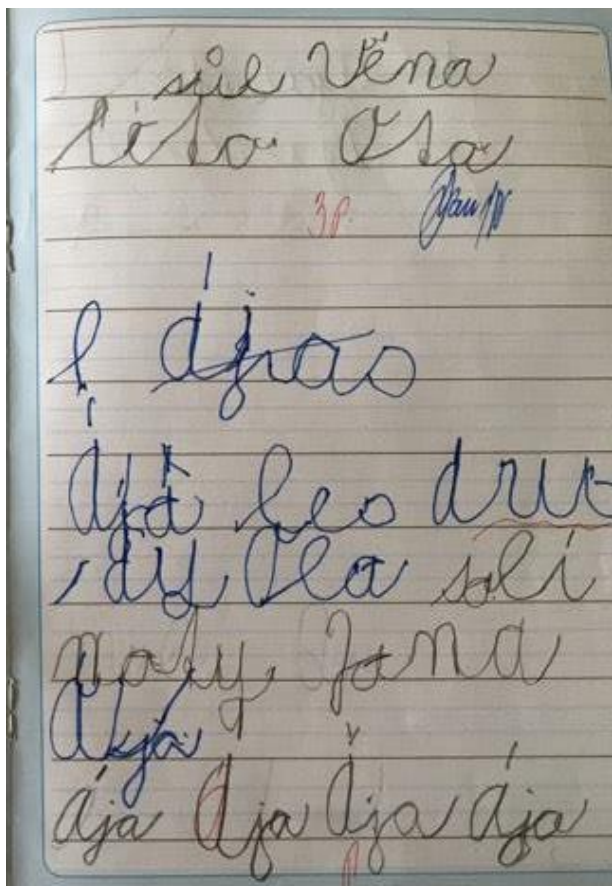 sůl Věna
léto Ota
3 p.
l
Ája Leo dru-
dy Ola solí
Jana
Ája
Ája Ája Ája Ája